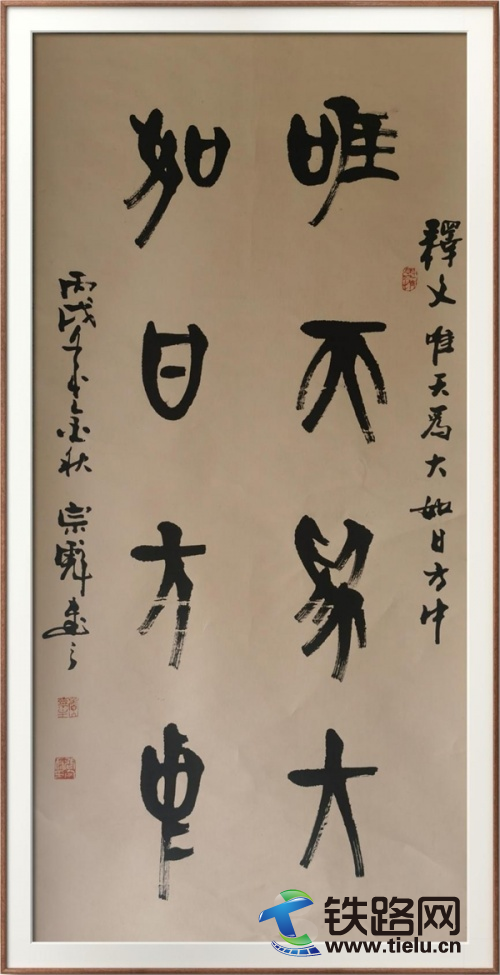 釋文 唯天為大如日方中
唯天為大
如日方中
丙戌年金秋 宗
铁路网
www.tielu.cn